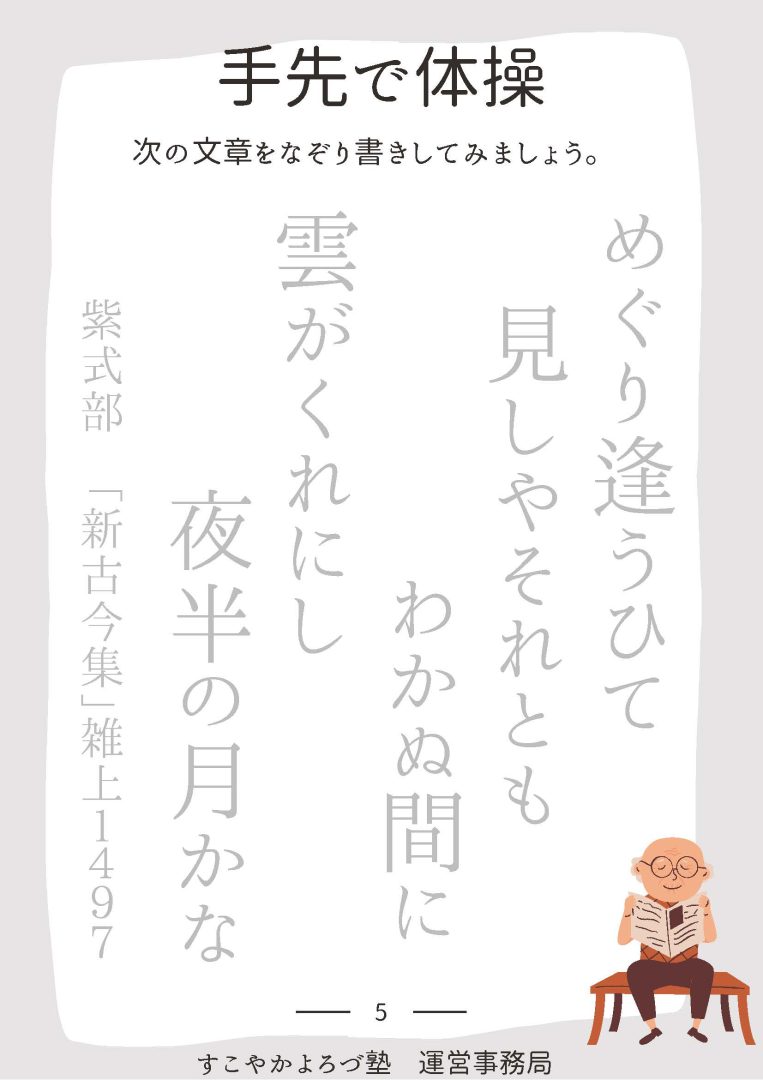 手先で体操
次の文章をなぞり書きしてみましょう。
めぐり逢うひて
見しやそれとも
わかぬ間に
雲がくれにし
夜半の月かな
紫式部　「新古今集」雑上1497
5
すこやかよろづ塾　運営事務局